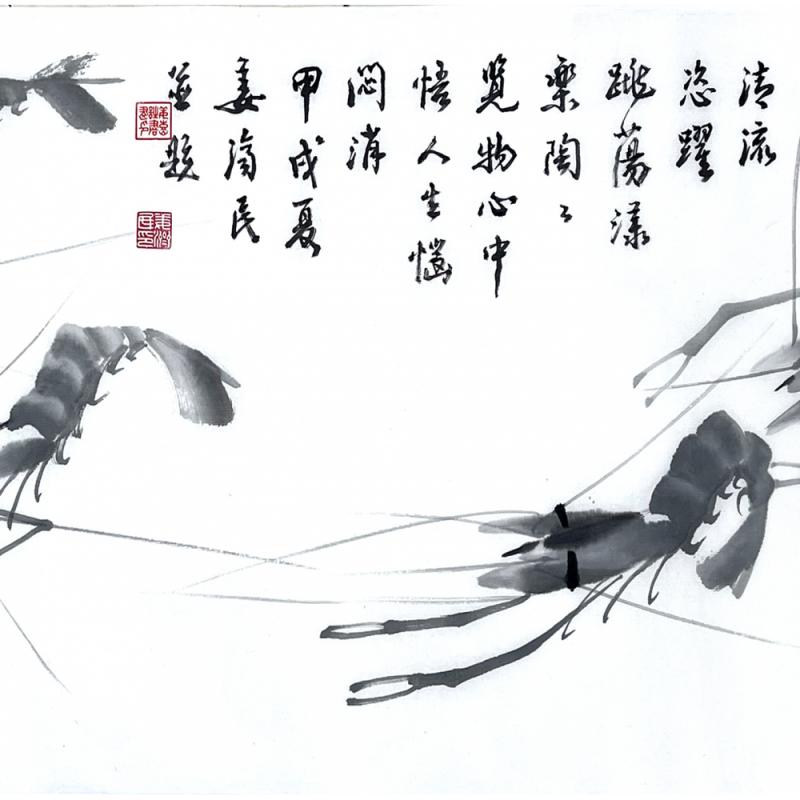 清流
恣躍
跳蕩漾
樂陶々
覽物心中
悟人生惱
悶消
甲戌夏
姜 民
並題